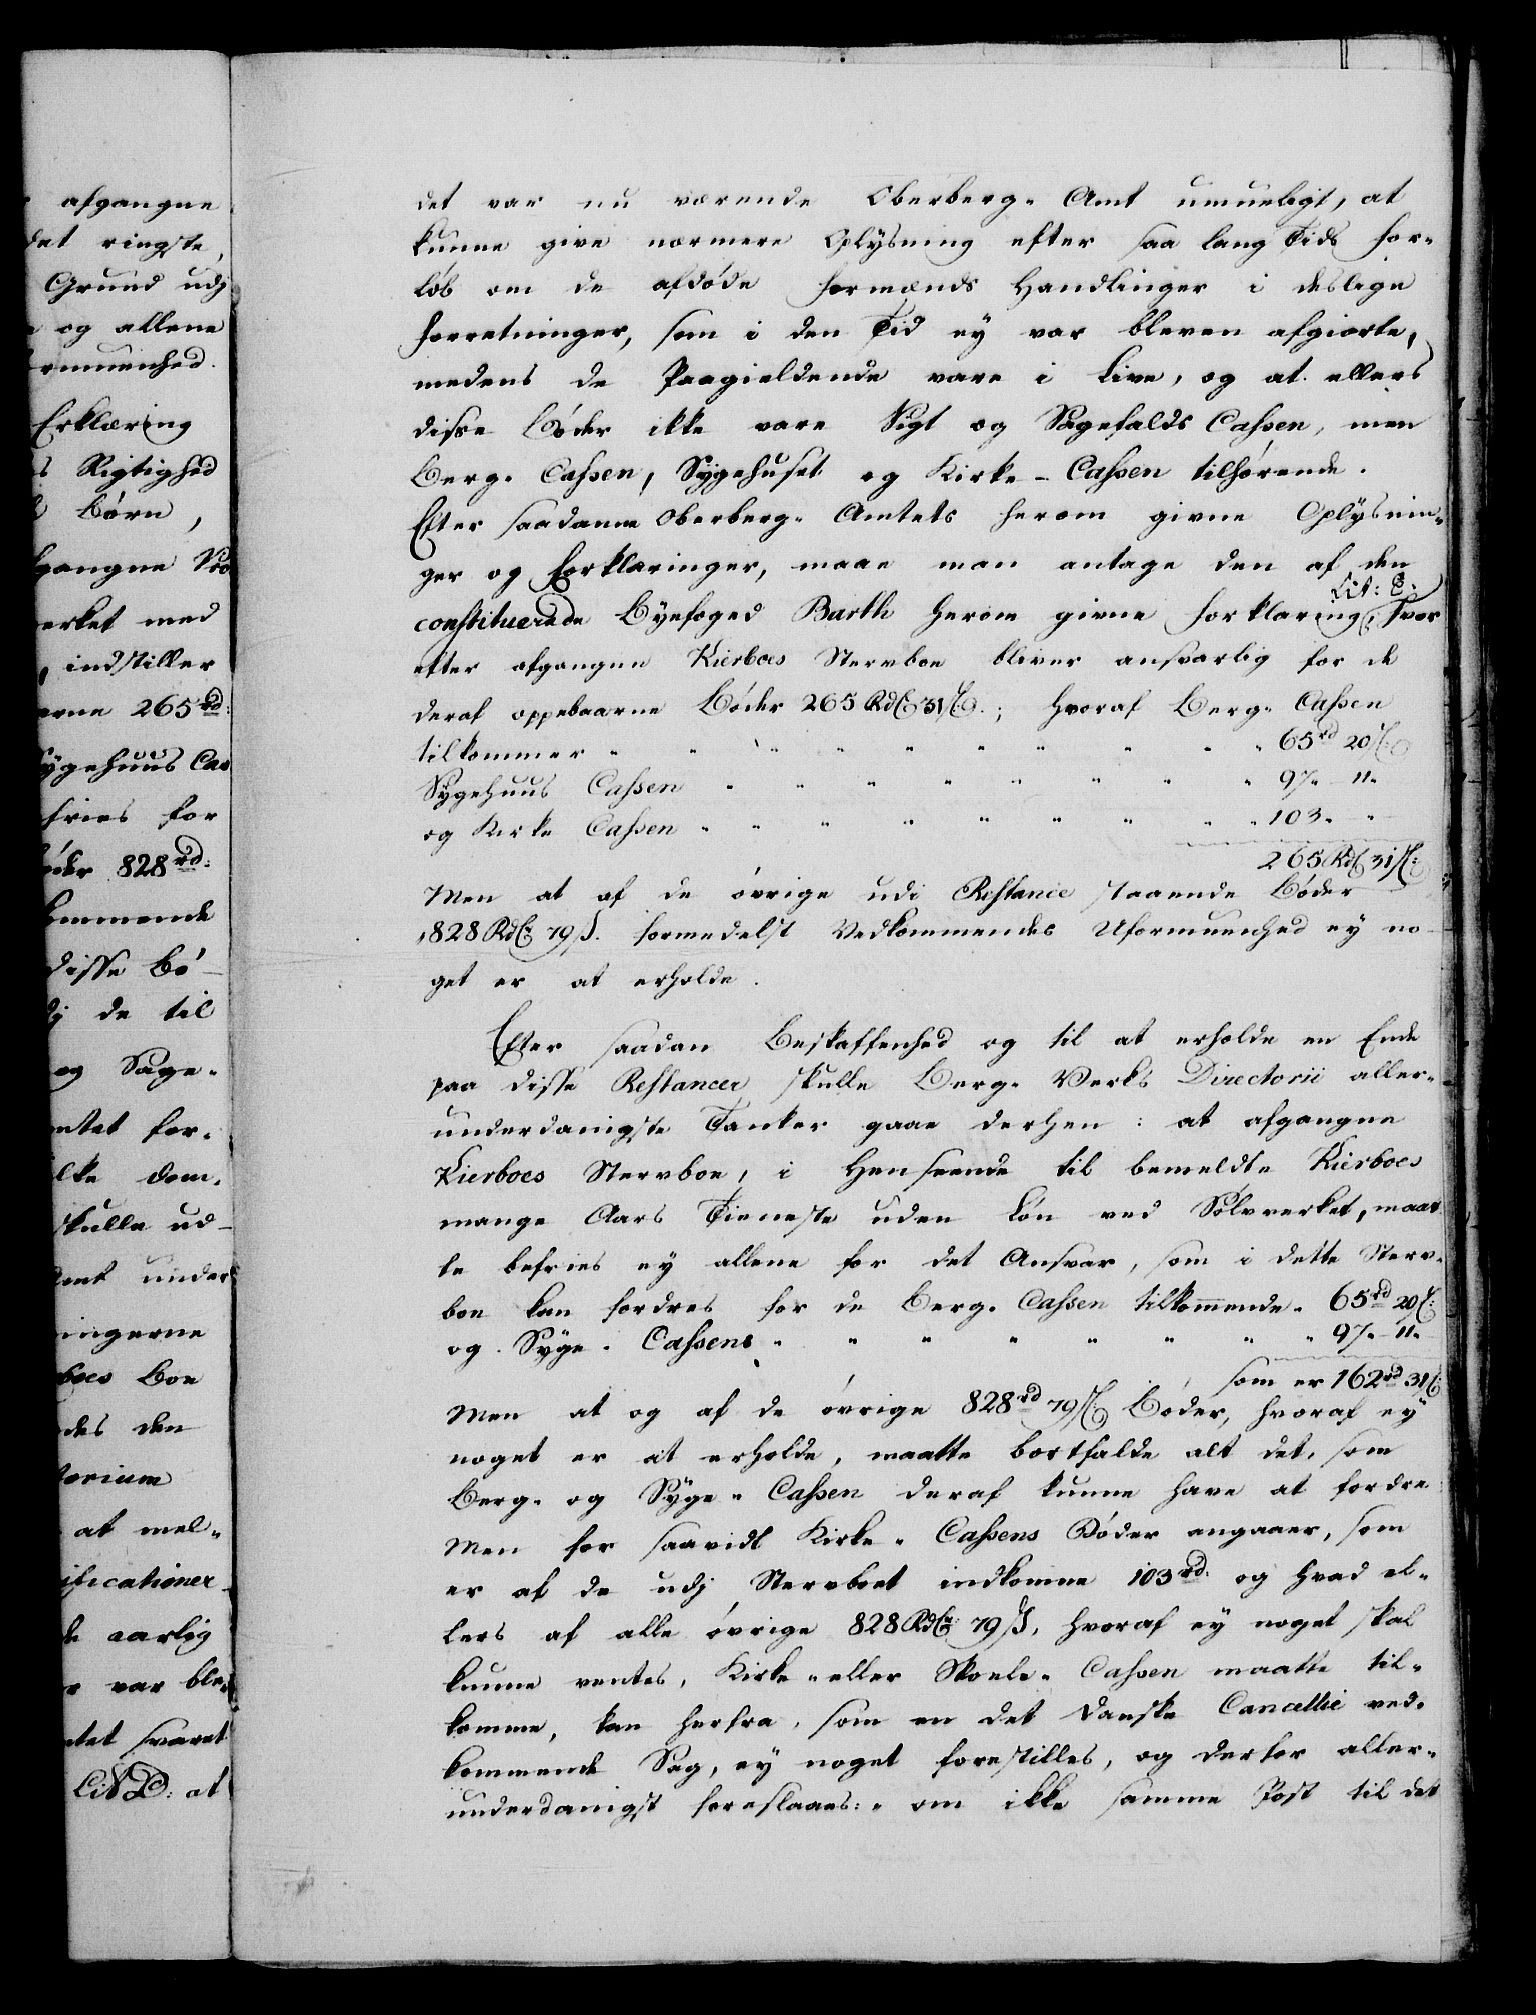 afgangne
det ringste,
Grund udj
og allene
ormuenhed.
Erklæring
s Rigtighed
Børn,
gangne
erket med
, indstiller
erne 265 rd:
Sygehuus Cas
fries for
øder 828 rd:
kommende
disse Bø-
dj de til
og Sage-
mtet for-
ilke dem,
skulle ud-
dent under
ningerne
boes Boe
des den
torium
at mel-
ificationer
de aarlig
e var ble-
mtet svaret
Lit D: at
det var nu værende Oberberg-Amt umueligt, at
kunne give nærmere Oplysning efter saa lang Tids for-
løb om de afdøde Formænds Handlinger i deslige
Forretninger, som i den Tid ey var bleven afgiorte,
medens de Paagieldende vare i Live, og at ellers
disse Bøder ikke vare Sigt og Sagefalds Cassen, men
Berg-Cassen, Sygehuset og Kirke-Cassen tilhørende.
Efter saadanne Oberberg-Amtets herom givne Oplysnin-
ger og Forklaringer, maae man antage den af den
Lit: C:
constituerede Byefoged Barth herom givne Forklaring, hvor
efter afgangne Kierboes Stervboe bliver ansvarlig for de
deraf oppebaarne Bøder 265 Rdlr 31 s.; hvoraf Berg-Cassen
tilkommer - - - - - - - - - 65 rd 20 s:
Sygehuus Cassen - - - - - - - - 97 - 11 -
og Kirke Cassen - - - - - - - - - 103 - -
265 Rdlr 31 s:
Men at af de øvrige udi Restance staaende Bøder
828 Rdlr 79 s. formedelst Vedkommendes Uformuenhed ey no-
get er at erholde.
Efter saadan Beskaffenhed og til at erholde en Ende
paa disse Restancer skulle Berg-Verks Directorii aller-
underdanigste Tanker gaae derhen: at afgangne
Kierboes Stervboe, i Henseende til bemeldte Kierboes
mange Aars Tieneste uden Løn ved Sølvverket, maat-
te befries ey allene for det Ansvar, som i dette Sterv-
boe kan fordres for de Berg-Cassen tilkommende - 65 rd 20 s:
og Syge-Cassens - - - - - - - - 97 - 11 -
som er 162 rd 31 s:
Men at og af de øvrige 828 rd 79 s: Bøder, hvoraf ey
noget er at erholde, maatte bortfalde alt det, som
Berg- og Syge-Cassen deraf kunne have at fordre
Men for saavidt Kirke-Cassens Bøder angaaer, som
er af de udj Stervboet indkomne 103 rd. og hvad el-
lers af alle øvrige 828 Rdlr 79 s, hvoraf ey noget skal
kunne ventes, Kirke- eller Skoele-Cassen maatte til-
komme, kan herfra, som en det Danske Cancellie ved-
kommende Sag, ey noget forestilles, og derfor aller-
underdanigst foreslaaes: - om ikke samme Post til det